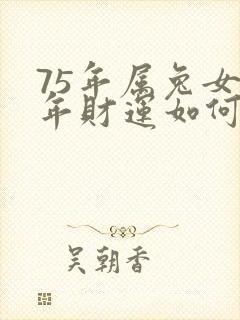 75年属兔女
年财运如何
吴朝香